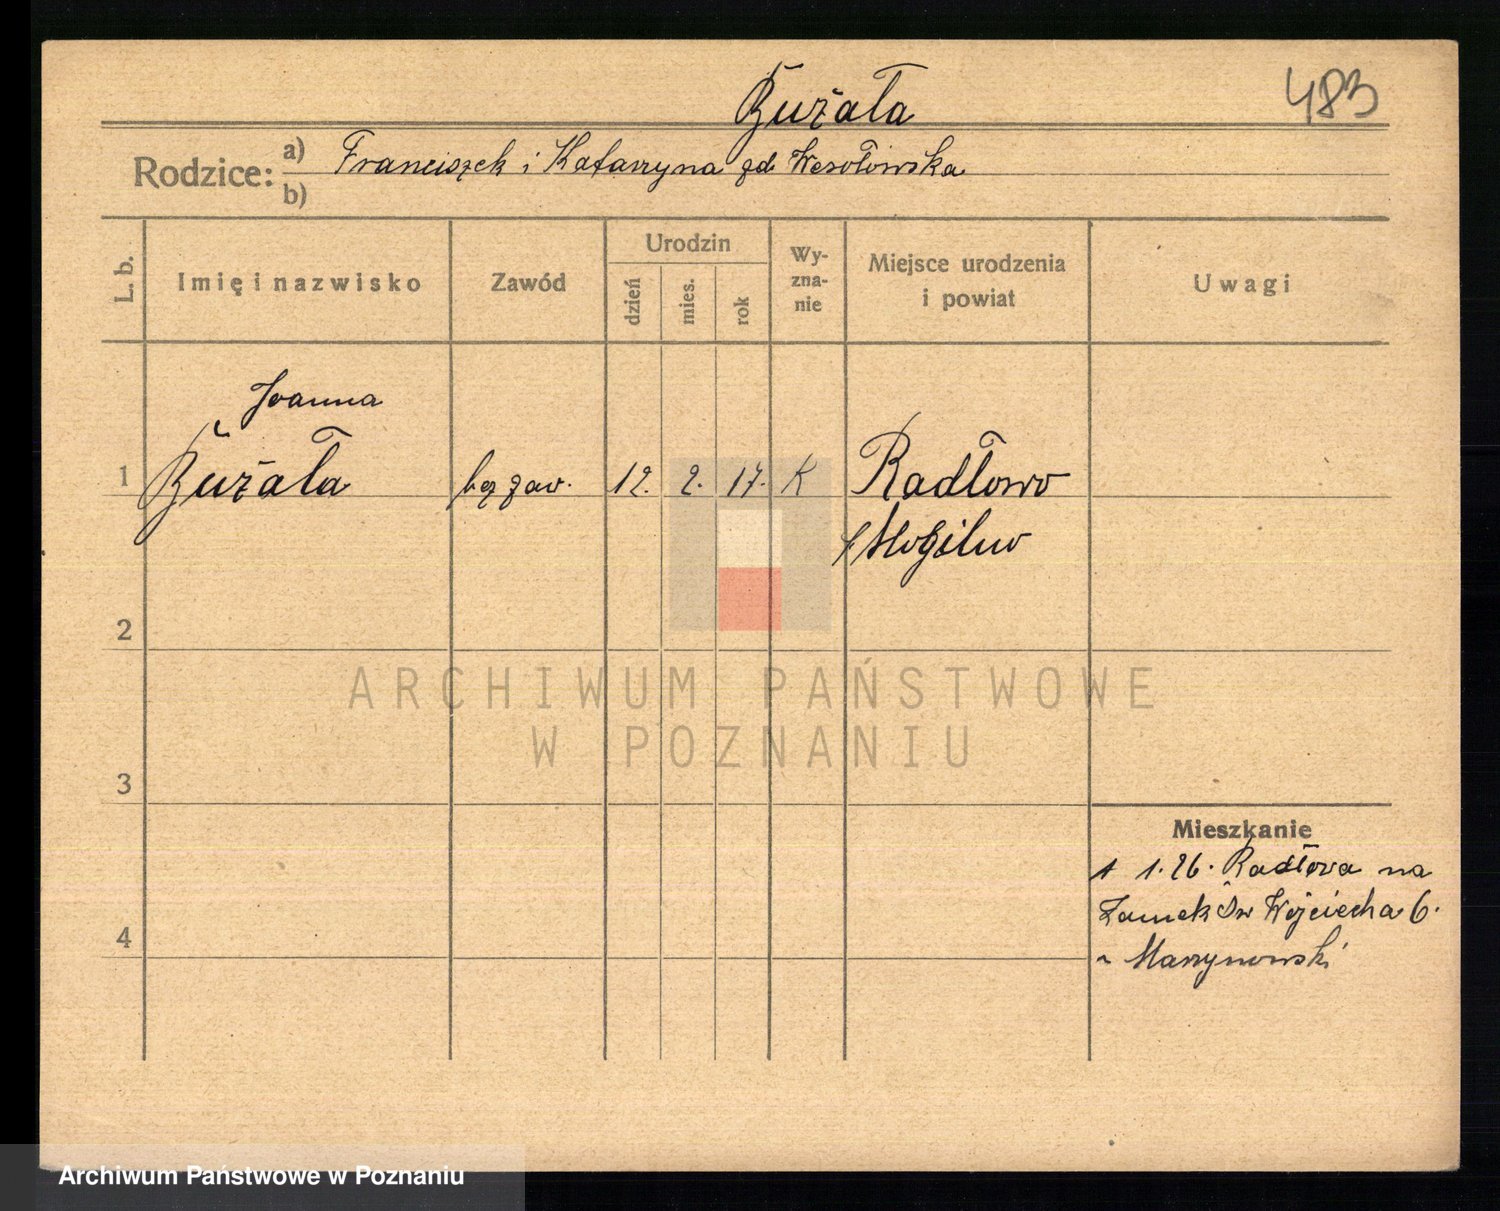 Bużała
483
Rodzice: a) Franciszek i Katarzyna zd Wesołowska
b)
L. b.
Imię i nazwisko
Zawód
Urodzin
dzień
mies.
rok
Wy-
zna-
nie
Miejsce urodzenia
i powiat
Uwagi
Joanna
1 Bużała bez zaw. 12. 2. 17. K Radłowo
Mogilno
2
ARCHIWUM PAŃSTWOWE
W POZNANIU
3
Mieszkanie
1. 26. Radłowa na
Zamek Św Wojciecha 6.
4
Marzynowski
Archiwum Państwowe w Poznaniu